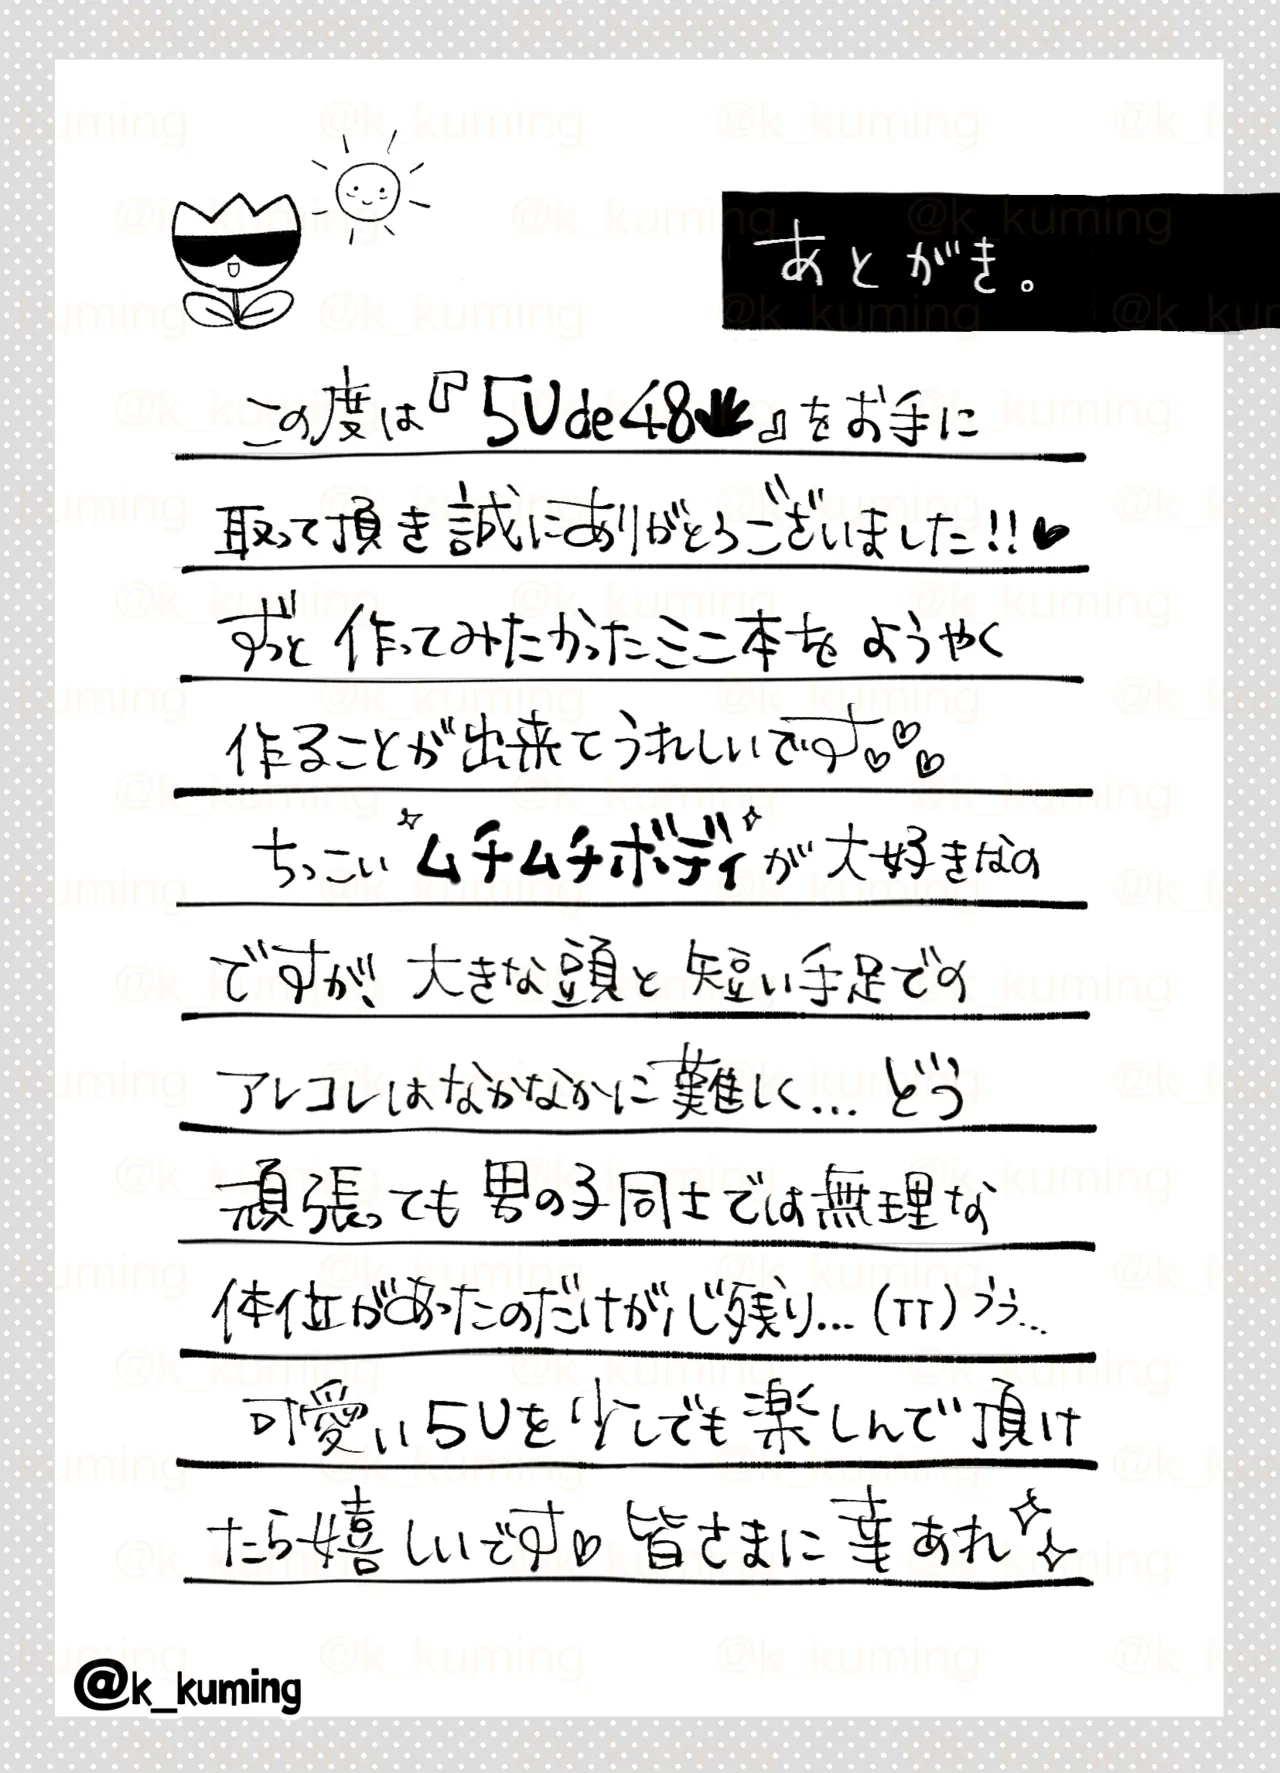 あとがき。
この度は『5Ude48』をお手に
取って頂き誠にありがとうございました!!♥
ずっと作ってみたかったミニ本をようやく
作ることが出来てうれしいです♡♡♡
ちっこいムチムチボディが大好きなの
ですが、大きな頭と短い手足での
アレコレはなかなかに難しく…どう
頑張っても男の子同士では無理な
体位があったのだけが心残り…(TT)うぅ…
可愛い5Uを少しでも楽しんで頂け
たら嬉しいです♡皆さまに幸あれ
@k_kuming